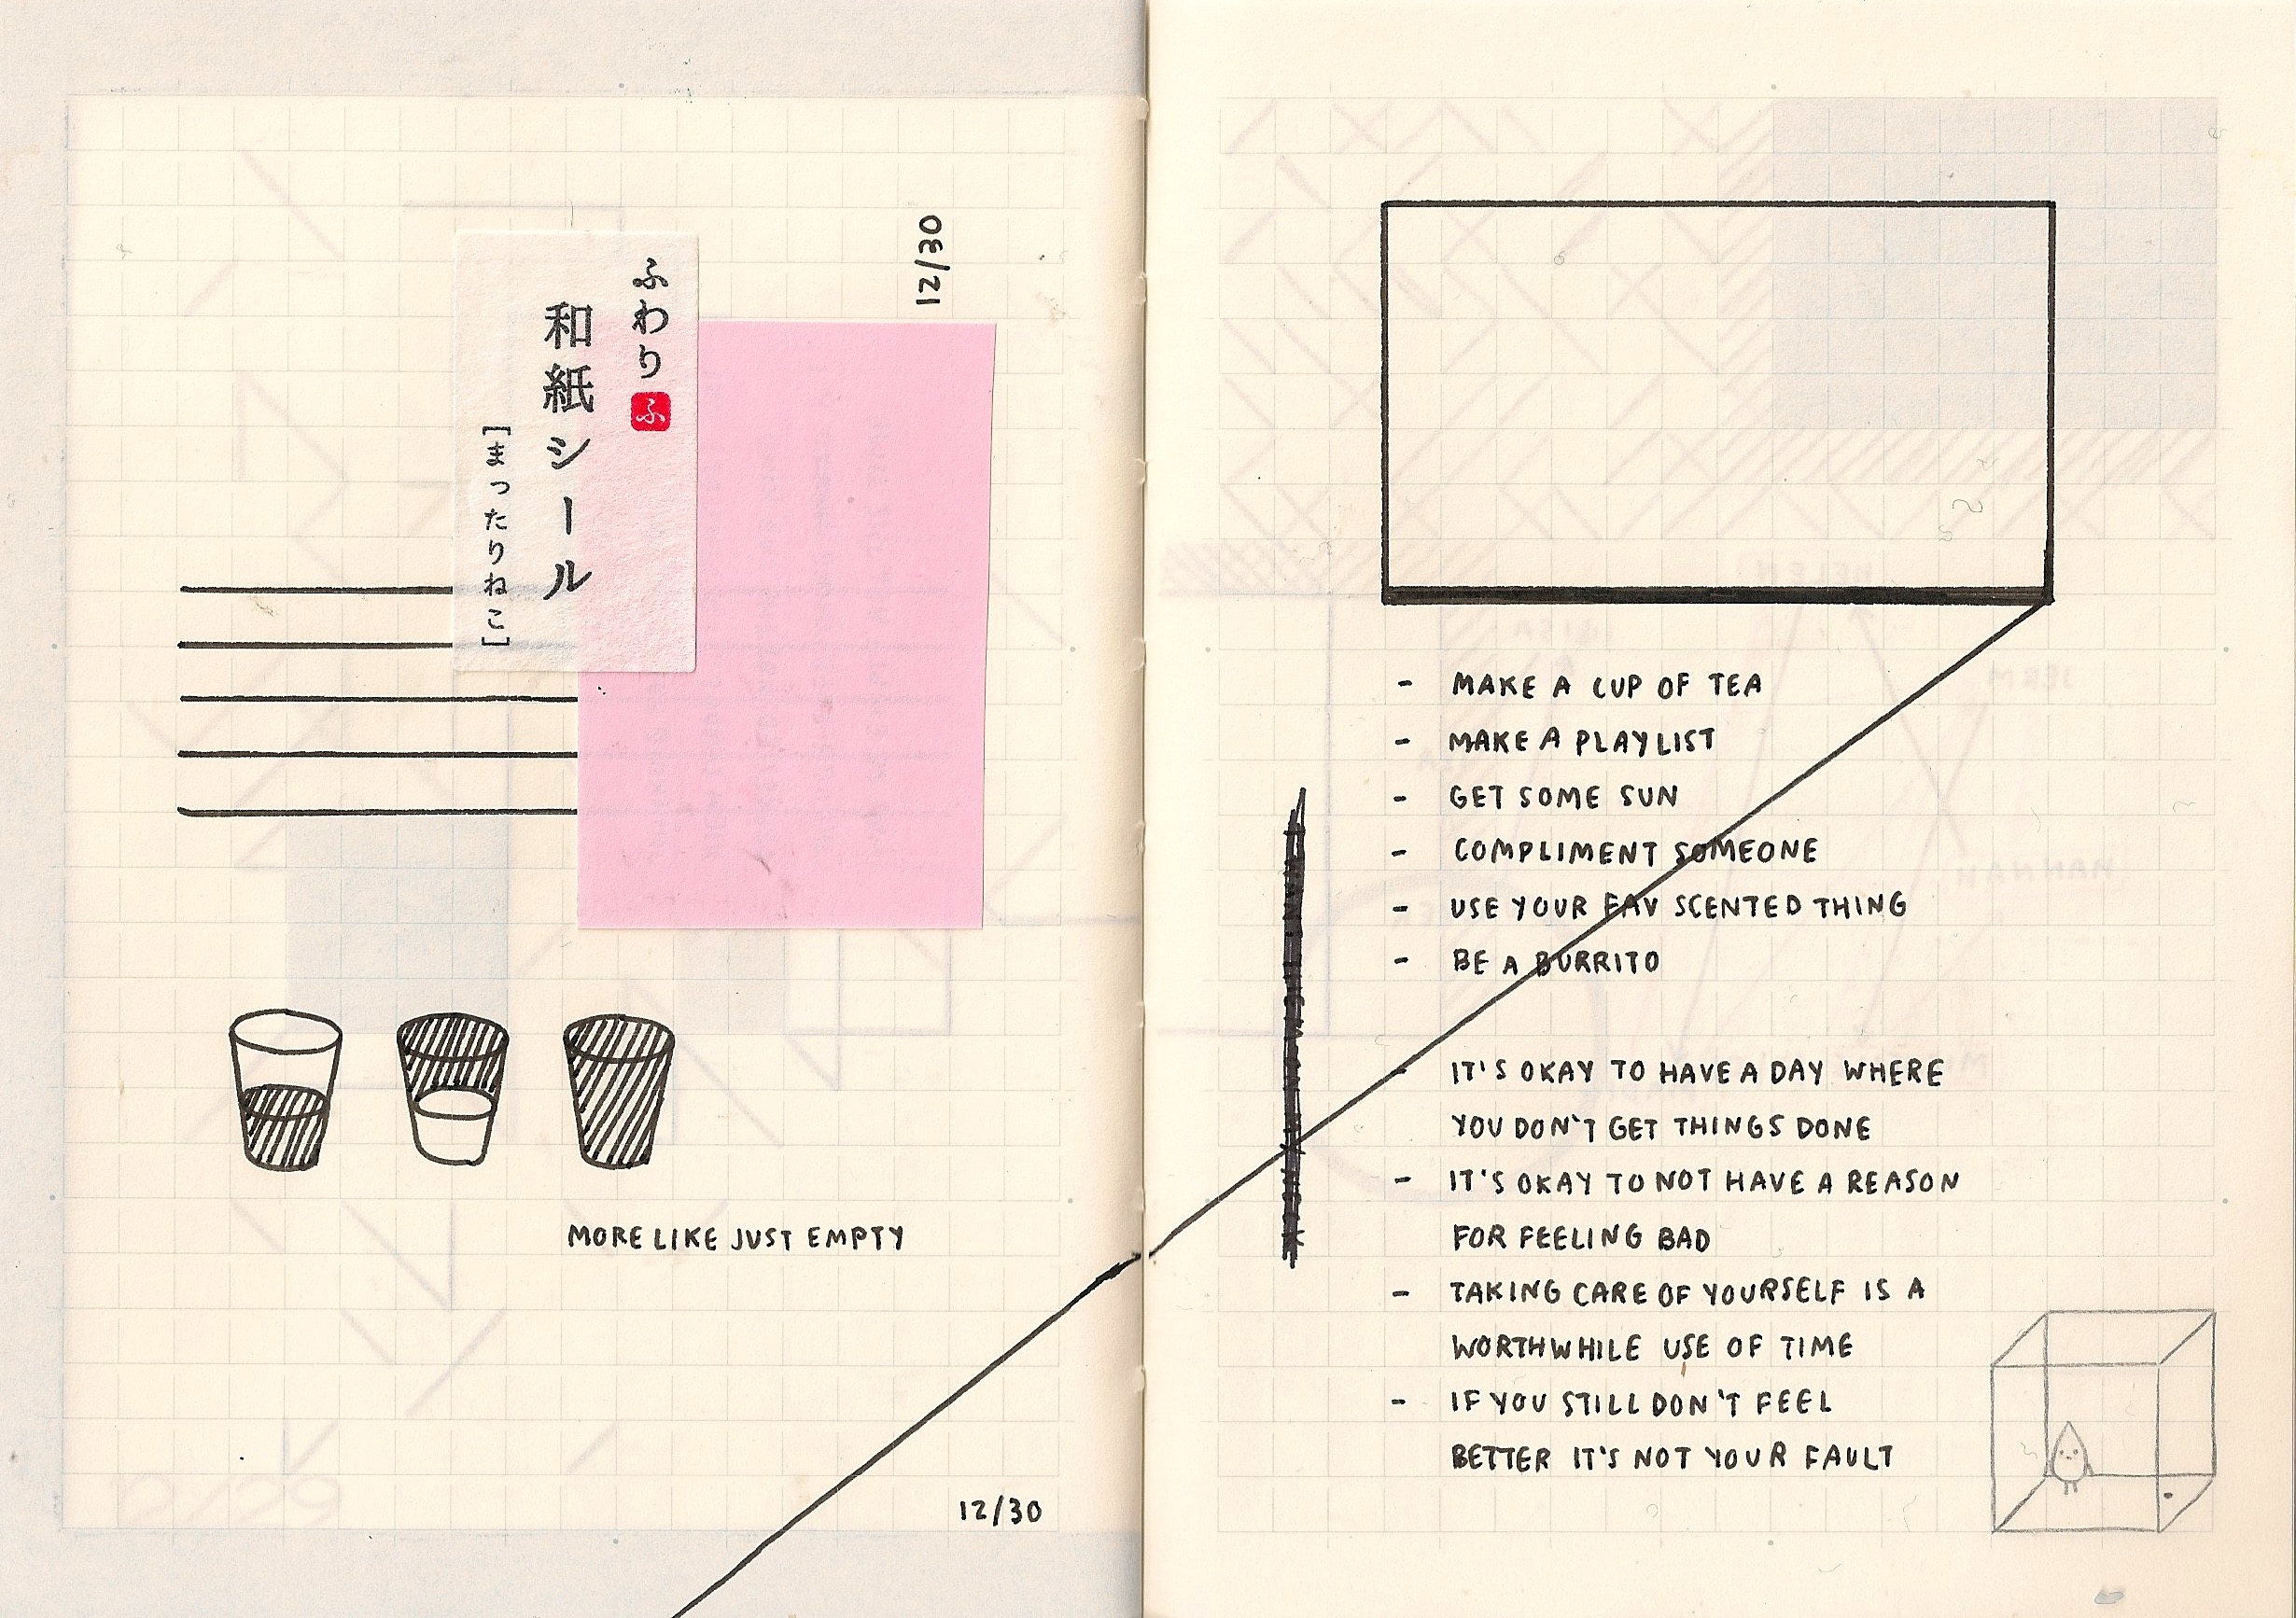 12/30
ふわり
ふ
和紙シール
[まったりねこ]
MORE LIKE JUST EMPTY
12/30
- MAKE A CUP OF TEA
- MAKE A PLAYLIST
- GET SOME SUN
- COMPLIMENT SOMEONE
- USE YOUR FAV SCENTED THING
- BE A BURRITO
- IT'S OKAY TO HAVE A DAY WHERE
YOU DON'T GET THINGS DONE
- IT'S OKAY TO NOT HAVE A REASON
FOR FEELING BAD
- TAKING CARE OF YOURSELF IS A
WORTHWHILE USE OF TIME
- IF YOU STILL DON'T FEEL
BETTER IT'S NOT YOUR FAULT